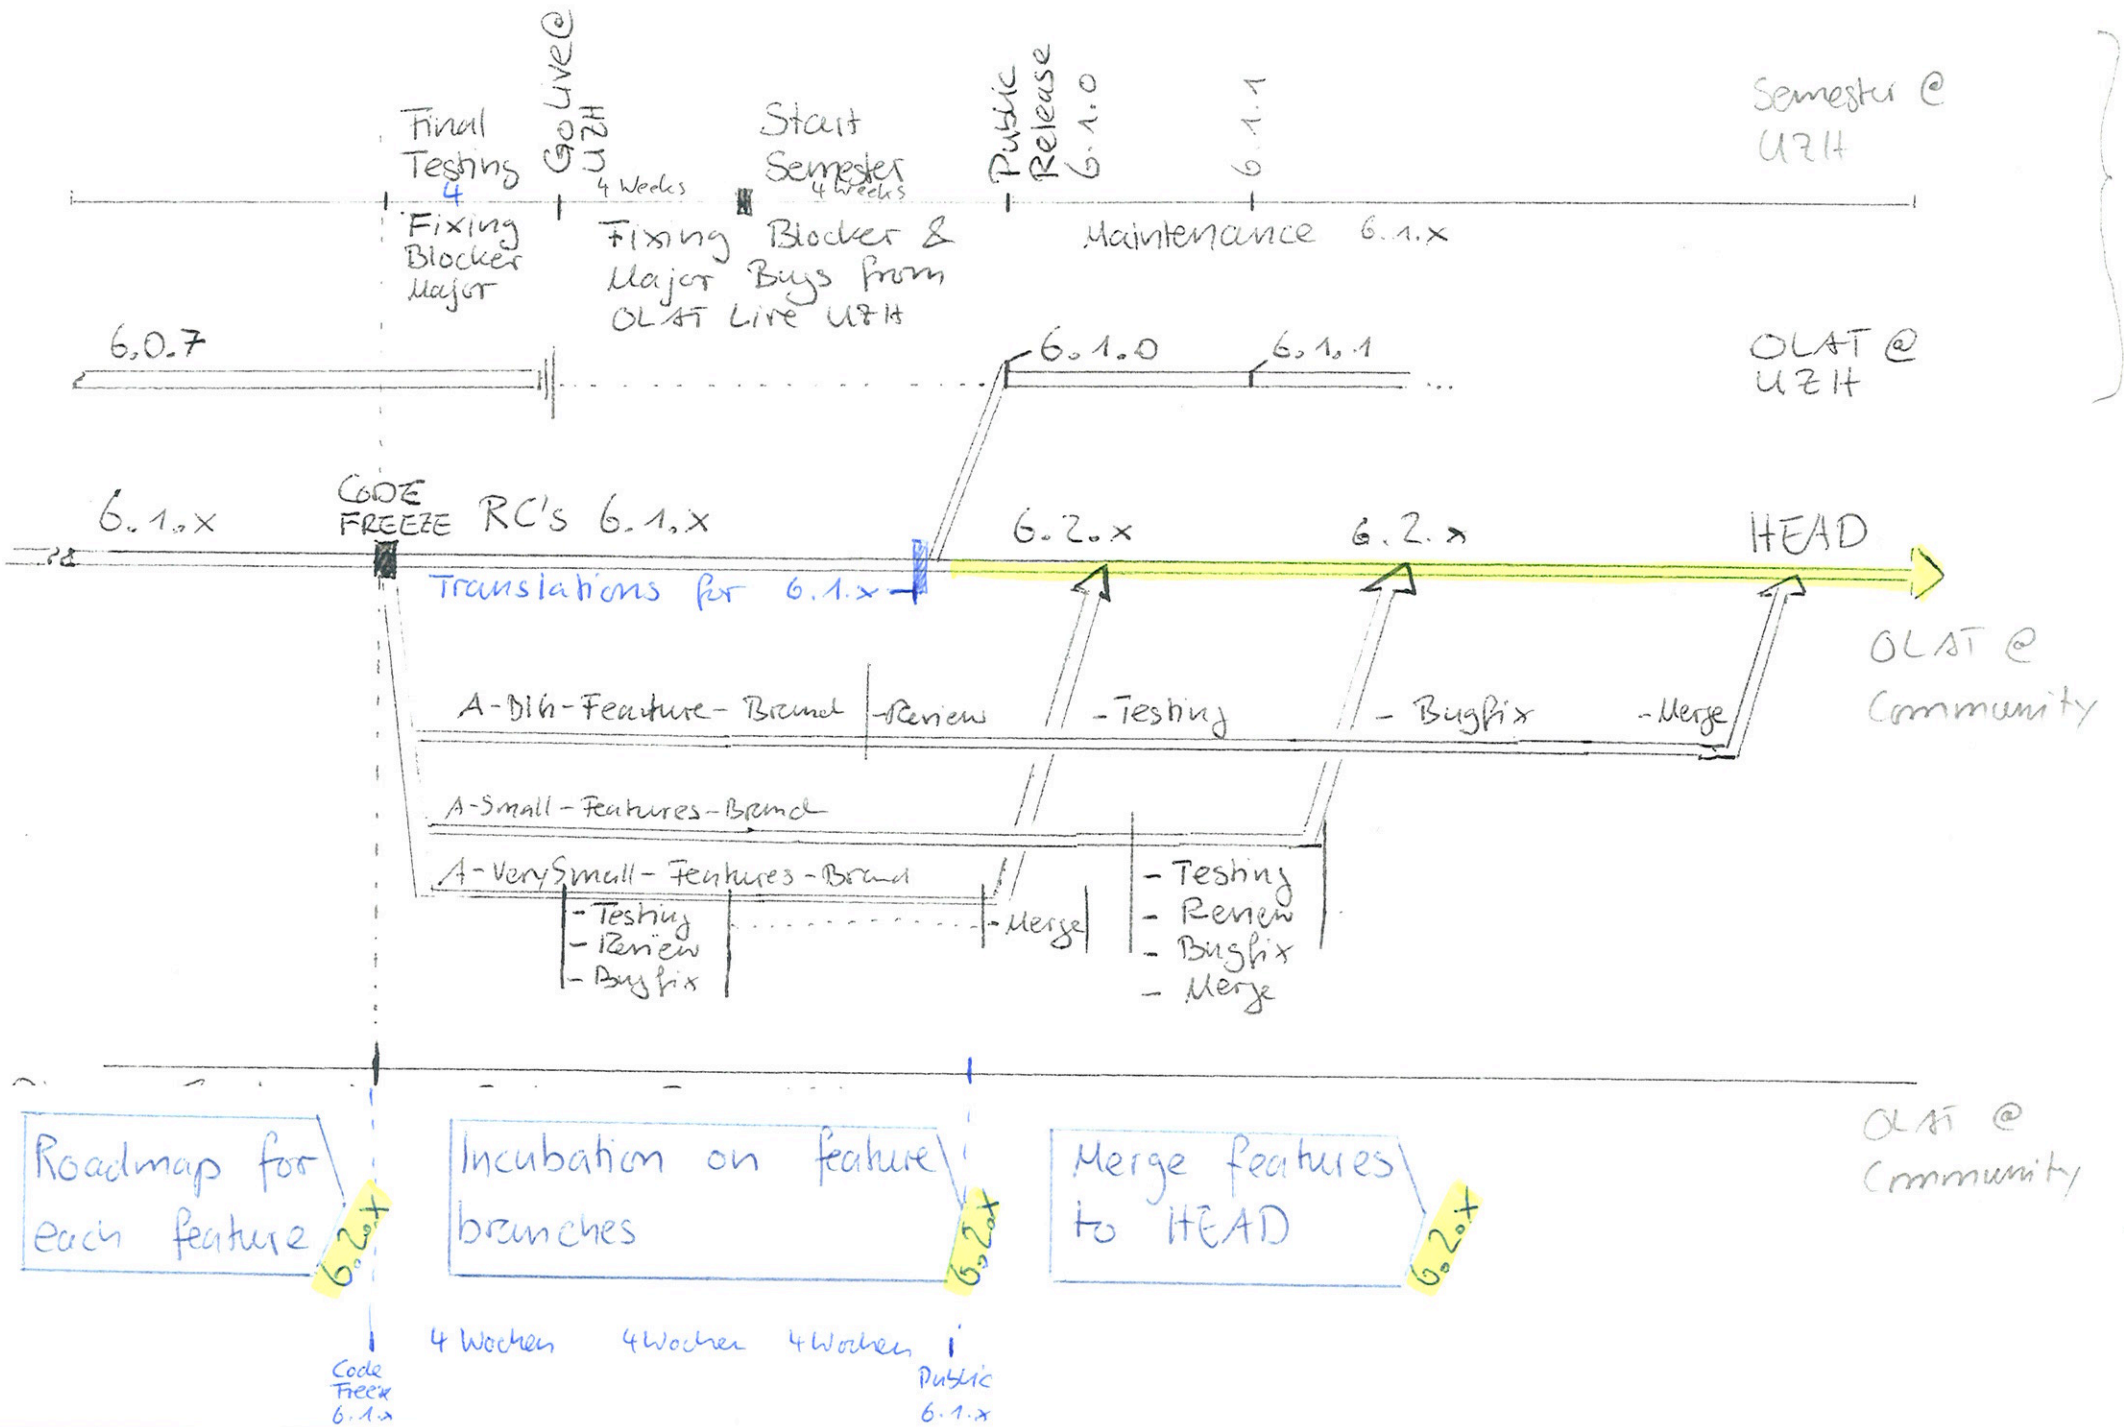 Final
Testing
4
Go Live@
UZH
4 Weeks
Start
Semester
4 Weeks
Public
Release
6.1.0
6.1.1
Semester @
UZH
Fixing
Blocker
Major
Fixing Blocker &
Major Bugs from
OLAT Live UZH
Maintenance 6.1.x
6.0.7
6.1.0
6.1.1
...
OLAT @
UZH
6.1.x
CODE
FREEZE
RC's 6.1.x
6.2.x
6.2.x
HEAD
Translations for 6.1.x
OLAT @
Community
A-BIG-Feature-Branch
-Review
-Testing
- Bugfix
-Merge
A-Small-Features-Branch
A-VerySmall-Features-Branch
- Testing
- Review
- Bugfix
- Merge
- Testing
- Review
- Bugfix
- Merge
OLAT @
Community
Roadmap for
each feature
6.2.x
Incubation on feature
branches
6.2.x
Merge features
to HEAD
6.2.x
4 Wochen 4 Wochen 4 Wochen
Code
Freeze
6.1.x
Public
6.1.x